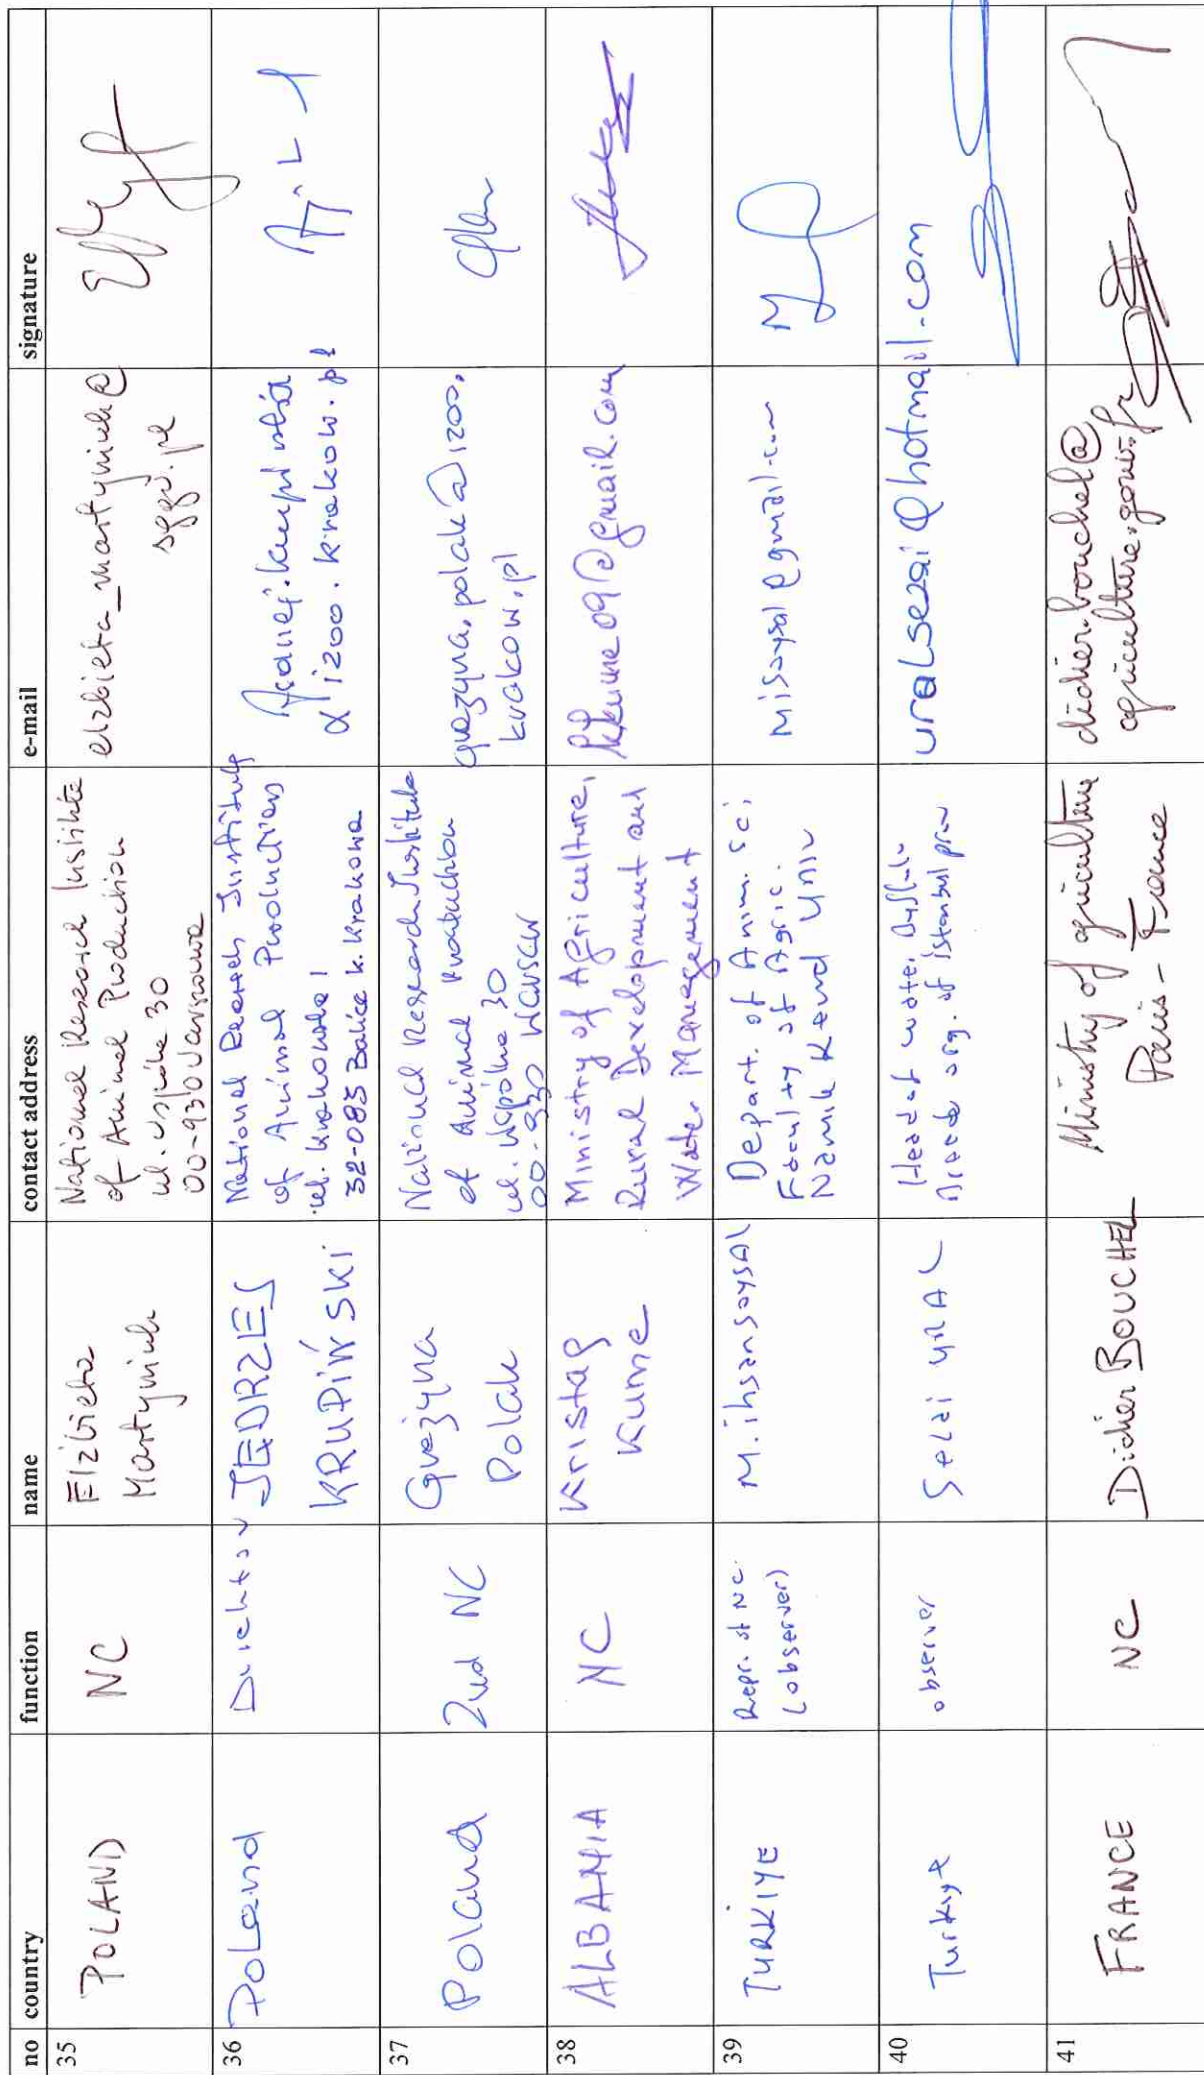 no country function name contact address e-mail signature
35 POLAND NC Elżbieta
Martyniuk
National Research Institute
of Animal Production
ul. Wspólna 30
00-930 Warszawa
elzbieta_martyniuk@
sggw.pl
36 Poland JEDRZEJ
KRUPIŃSKI
National Research Institute
of Animal Production
ul. Krakowska 1
32-083 Balice k. Krakowa
izoo.krakow.pl
37 Poland 2nd NC Grażyna
Polak
National Research Institute
of Animal Production
ul. Wspólna 30
00-930 Warsaw
grazyna.polak@izoo.
krakow.pl
38 ALBANIA NC Kristaq
Kume
Ministry of Agriculture,
Rural Development and
Water Management
kkume09@gmail.com
39 TURKIYE Repr. of NC.
(observer)
M. ihsan SOYSAL
Depart. of Anim. Sci
Faculty of Agric.
Namık Kemal Univ
misoysal@gmail.com
40 Turkiye observer Sezai URAL
Head of
org. of istanbul
uralsezai@hotmail.com
41 FRANCE NC Didier BOUCHEL
Ministry of agriculture
Paris - France
didier.bouchel@
agriculture.gouv.fr